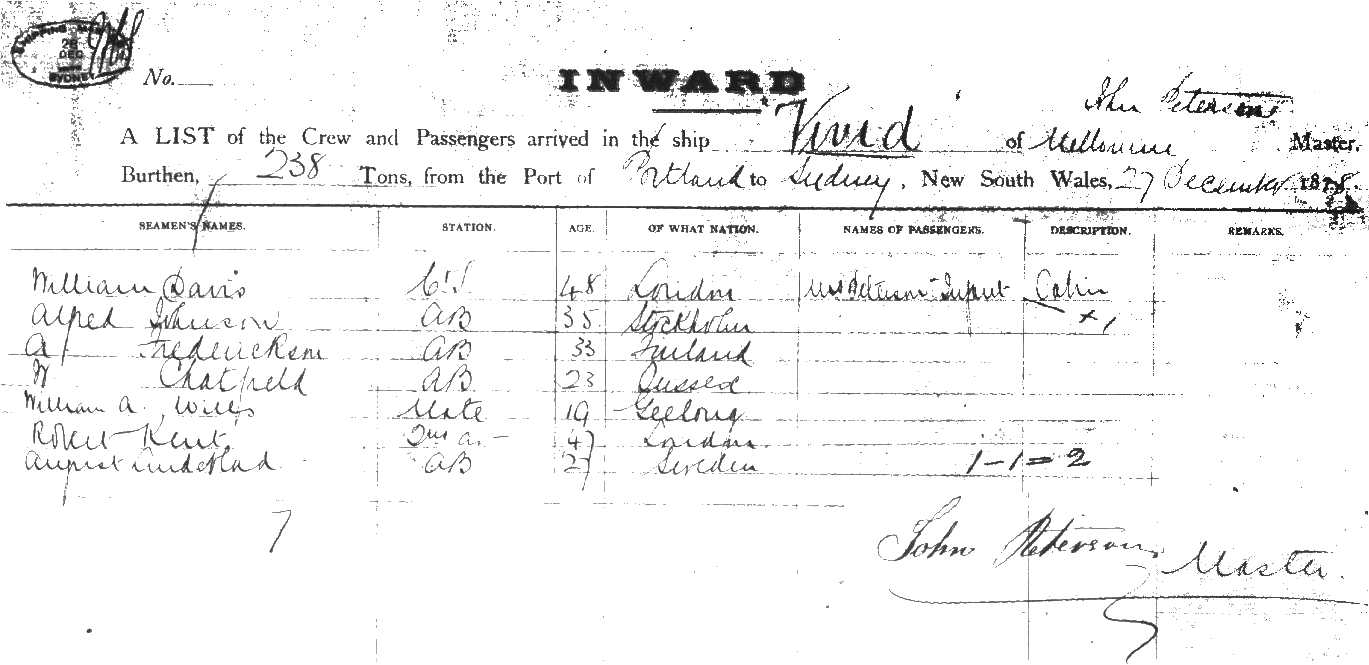 SHIPPING MAS
26
DEC
SYDNEY
No.
INWARD
John Peterson
A LIST of the Crew and Passengers arrived in the ship Vivid of Melbourne Master.
Burthen, 238 Tons, from the Port of Portland to Sydney, New South Wales, 27 December 187
SEAMEN'S NAMES. STATION. AGE. OF WHAT NATION. NAMES OF PASSENGERS. DESCRIPTION. REMARKS.
William Davis 48 London Mrs Peterson - Infant Cabin
Alfred Johnson AB 35 Stockholm
A Frederickson AB 33 Finland
W Chatfield AB 23
William A. Wills Mate 19 Geelong
Robert Kent 47 London
August AB 27 Sweden 1-1=2
7
John Peterson Master.